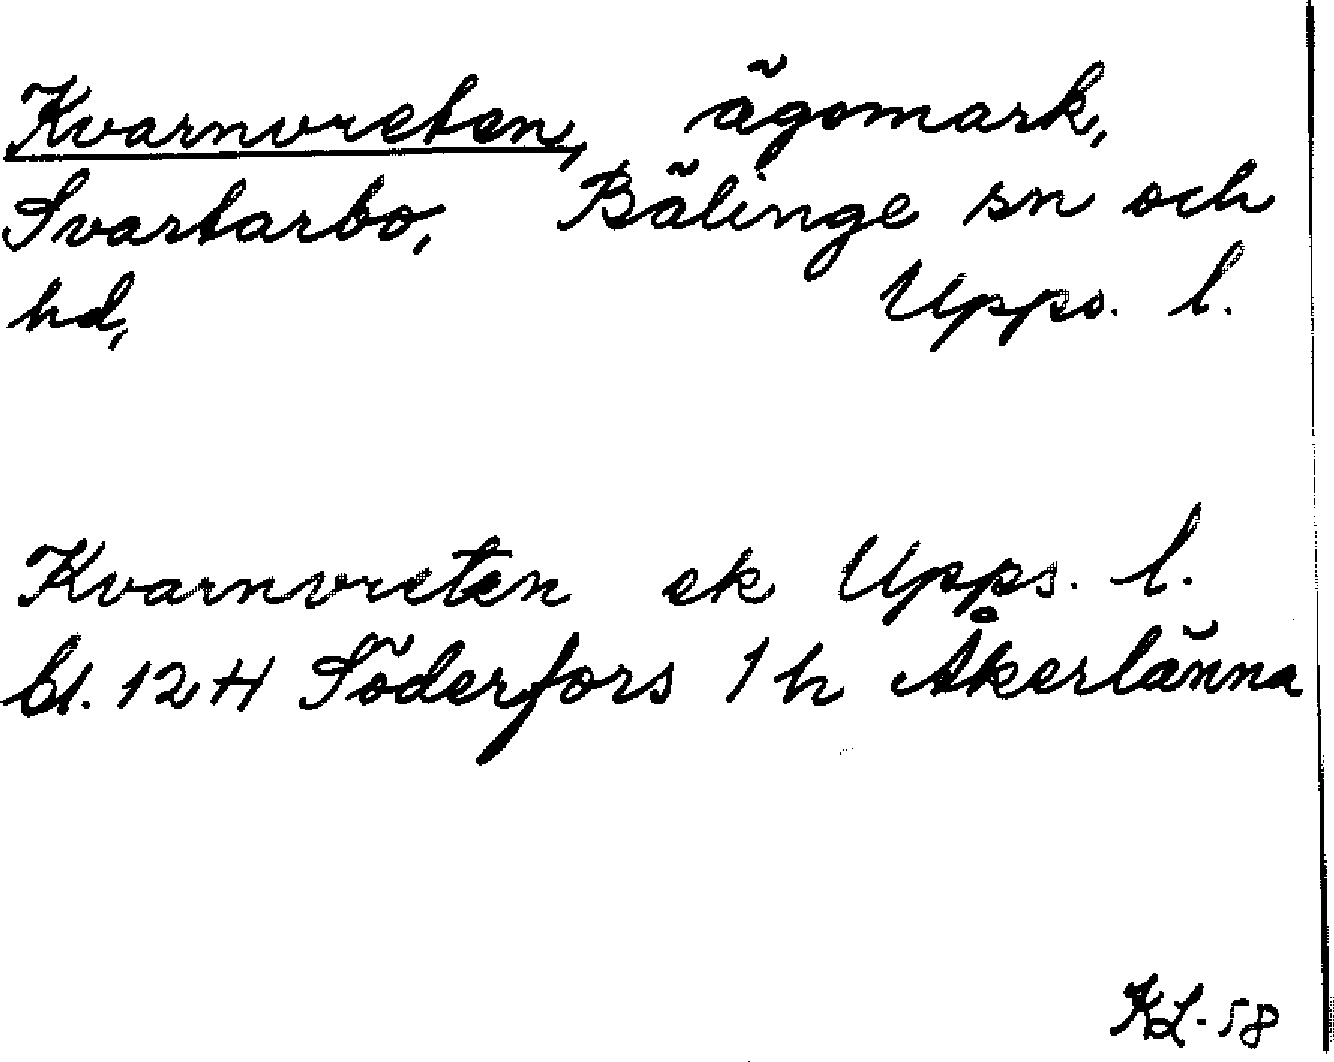 Kvarnvreten, ägomark,
Svartarbo, Bälinge sn och
hd, Upps. l.
Kvarnvreten ek Upps. l.
bl. 12 H Söderfors 1 h Åkerlänna
KL-58